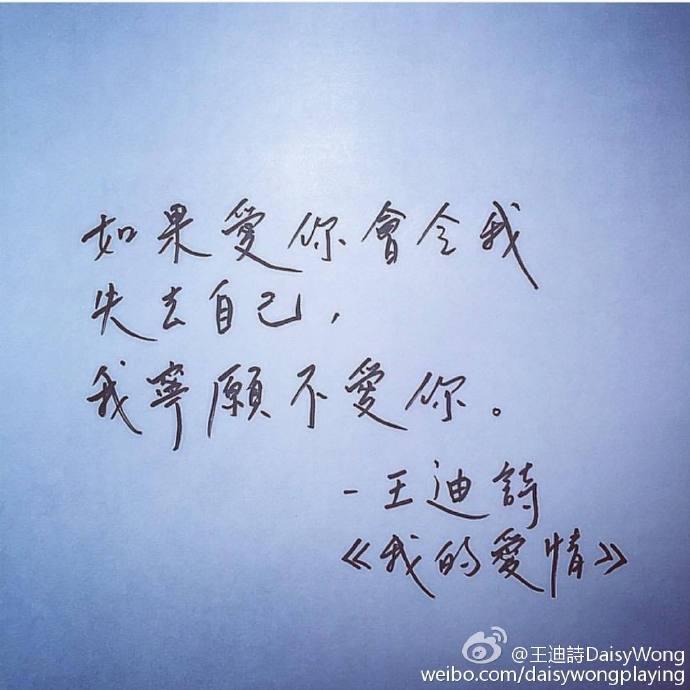 如果愛你會令我
失去自己，
我寧願不愛你。
-王迪詩
《我的愛情》
@王迪詩DaisyWong
weibo.com/daisywongplaying